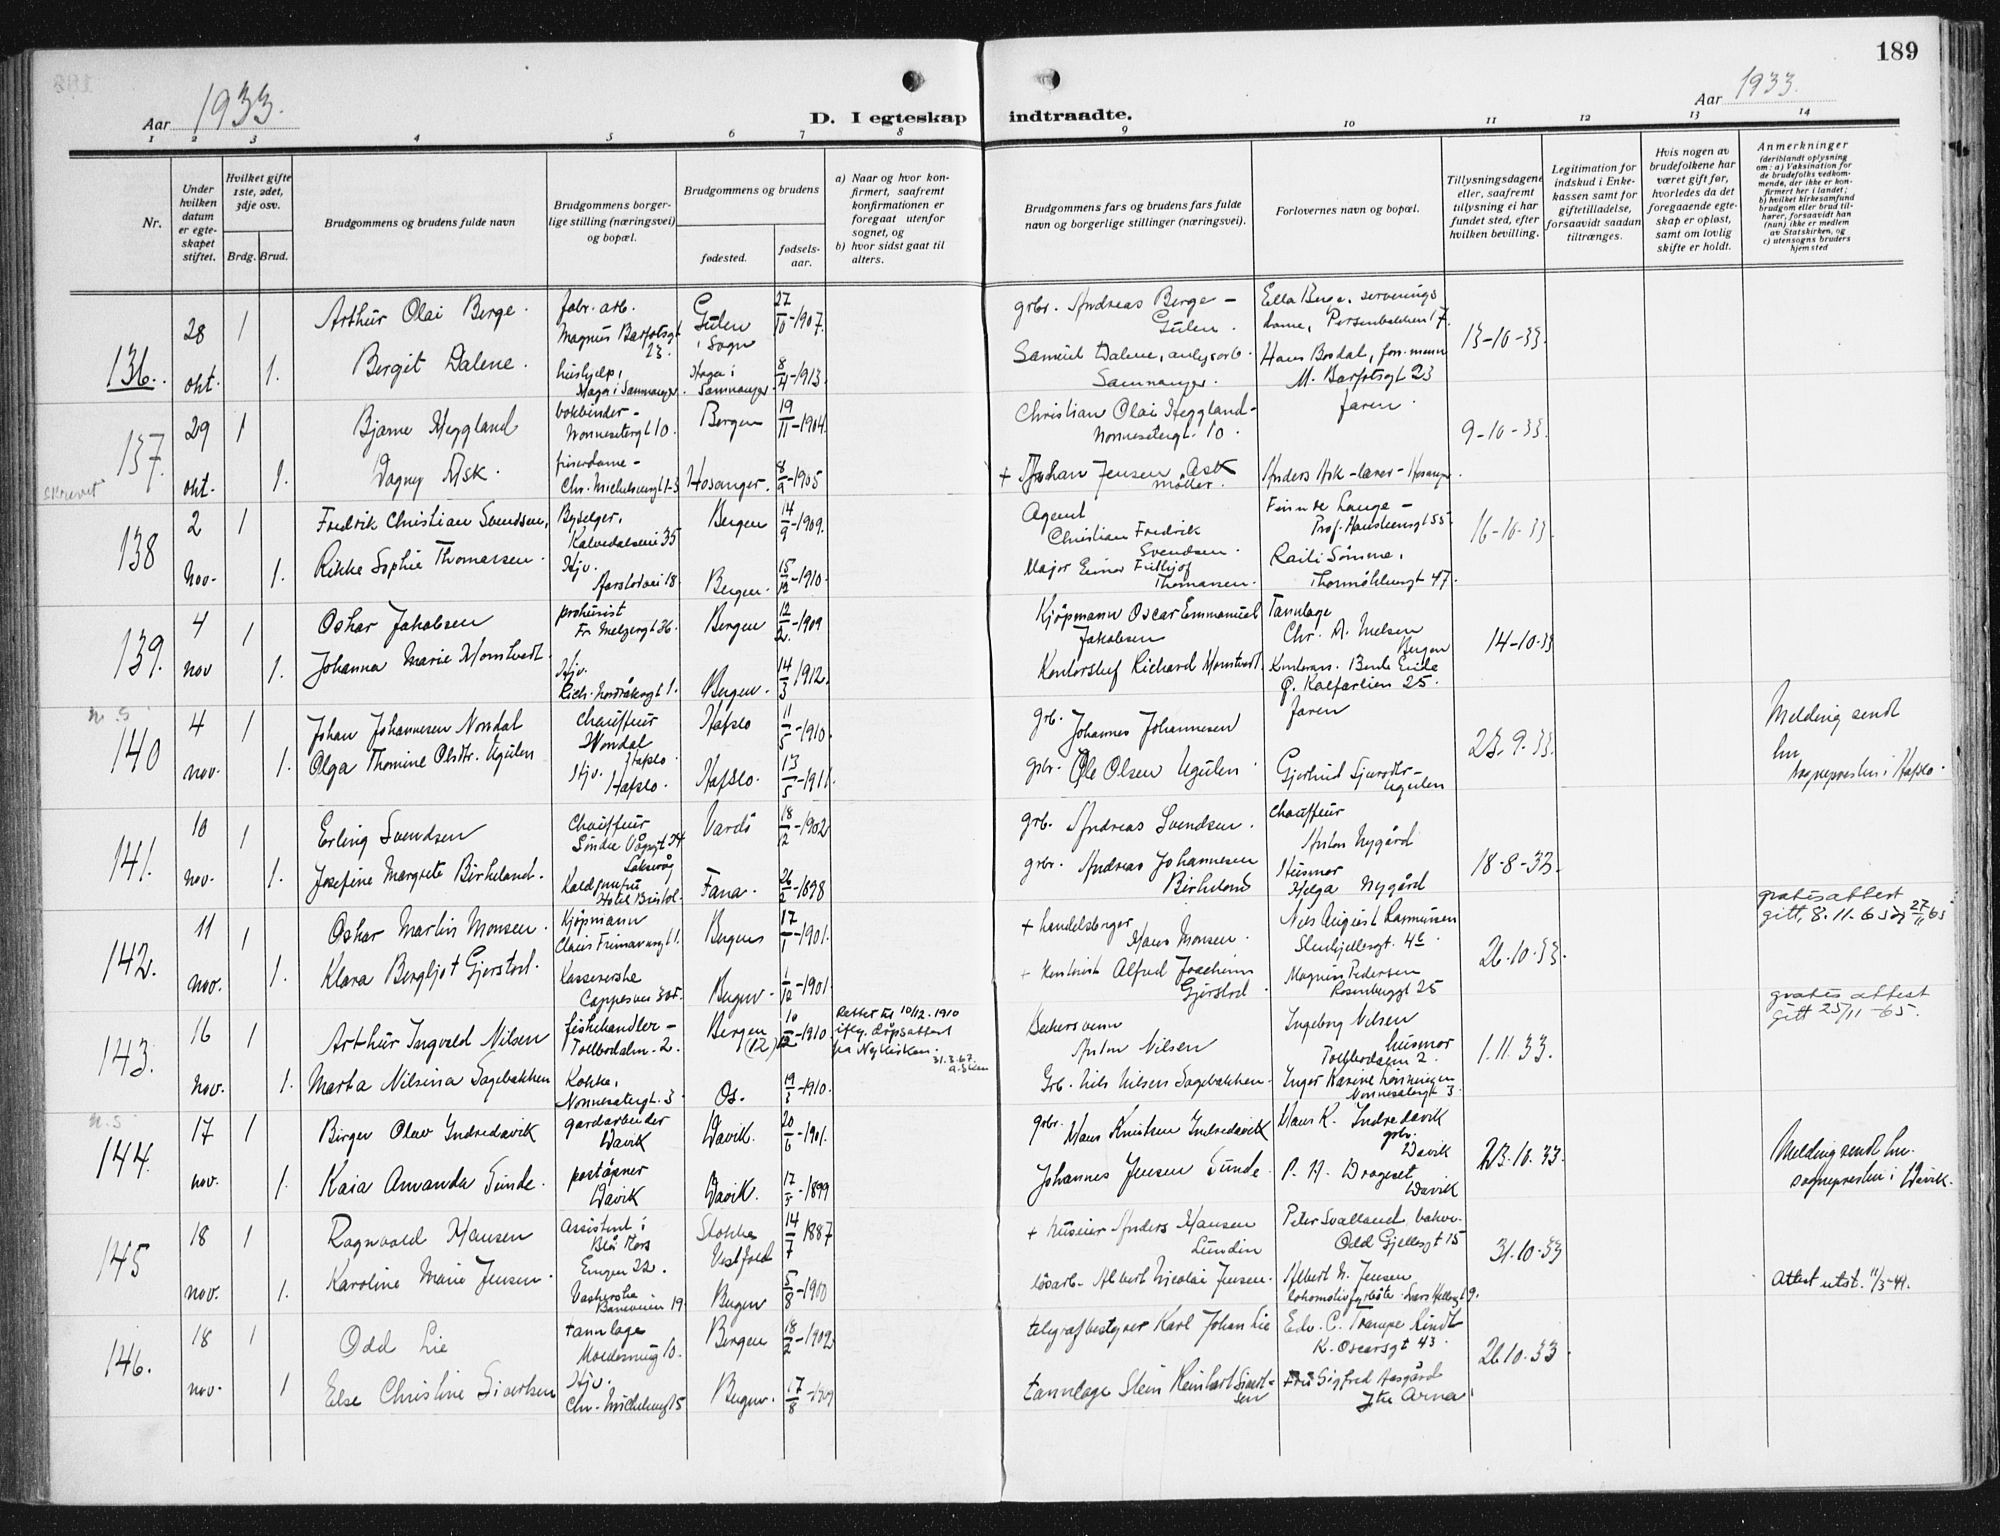 189
Aar 1933.
D. I egteskap indtraadte.
Aar 1933.
1 2 3 4 5 6 7 8 9 10 11 12 13 14
Nr.
Under hvilken datum er egteskapet stiftet.
Hvilket gifte 1ste, 2det, 3dje osv.
Brdg. Brud.
Brudgommens og brudens fulde navn
Brudgommens borgerlige stilling (næringsvei) og bopæl.
Brudgommens og brudens
fødested.
fødselsaar.
a) Naar og hvor konfirmert, saafremt konfirmationen er foregaat utenfor sognet, og
b) hvor sidst gaat til alters.
Brudgommens fars og brudens fars fulde navn og borgerlige stillinger (næringsvei).
Forlovernes navn og bopæl.
Tillysningsdagene eller, saafremt tillysning ei har fundet sted, efter hvilken bevilling.
Legitimation for indskud i Enkekassen samt for giftetilladelse, forsaavidt saadan tiltrænges.
Hvis nogen av brudefolkene har været gift før, hvorledes da det foregaaende egteskap er opløst, samt om lovlig skifte er holdt.
Anmerkninger
(deriblandt oplysning om: a) Vaksination for de brudefolks vedkommende, der ikke er konfirmert her i landet; b) hvilket kirkesamfund brudgom eller brud tilhører, forsaavidt han (hun) ikke er medlem av Statskirken, og c) utensogns bruders hjemsted
136. 28 okt. 1 1.
Arthur Olai Berge. fabr. arb. Magnus Barfotsgt 23. Gulen i Sogn 27/10-1907.
grbr. Andreas Berge - Gulen. Ella Berge, serveringsdame, Persenbakken 17. 13-10-33.
Bergit Dalene. hushjelp, Haga i Samnanger. Haga i Samnanger. 8/4-1913.
Samuel Dalene, anlegsarb. Samnanger. Hans Bosdal, formann M. Barfotsgt 23
137. 29 okt. 1 1.
Bjarne Heggland bokbinder - Nonnesetergt 10. Bergen 19/11-1904.
Christian Olai Heggland - Nonnesetergt. 10. faren. 9-10-33.
Dagny Ask. friserdame - Chr. Michelsensgt 1-3 Hosanger. 8/9-1905
+ Johan Jensen Ask møller. Anders Ask - lærer - Hosanger.
skrevet
138 2 nov. 1 1.
Fredrik Christian Svendsen, Byselger, Kalvedalsvei 35 Bergen 14/9-1909.
Agent Christian Fredrik Svendsen. Finn de Lange - Prof. Hansteensgt 55. 16-10-33
Rikke Sophie Thomassen. Hjv. Aarstadvei 18. Bergen. 15/12-1910.
Major Einar Fridtjof Thomassen. Raili Sømme, Thormøhlensgt 47.
139. 4 nov 1 1.
Oskar Jakobsen prokurist Fr. Meltzersgt 36. Bergen 12/2-1909
Kjøpmann Oscar Emmanuel Jakobsen Tannlæge Chr. A. Nielsen Bergen 14-10-33
Johanna Marie Monstvedt. Hjv. Rich. Nordråksgt 1. Bergen. 14/3 1912.
Kontorsjef Richard Monstvedt. Ø. Kalfarlien 25.
n. s.
140 4 nov. 1 1.
Johan Johannesen Nondal chauffeur Nondal Hafslo. Hafslo 11/5-1910.
grb. Johannes Johannesen faren 9. 33.
Olga Thomine Olsdtr. Ugulen Hjv. Hafslo. Hafslo. 13/5-1911.
grbr. Ole Olsen Ugulen. Gjertrud Ugulen
Melding sendt hr. sognepresten i Hafslo.
141. 10 nov. 1 1.
Erling Svendsen chauffeur Vardø 18/2-1902
grb. Andreas Svendsen. chauffeur Anton Nygård 18-8-33.
Josefine Margrete Birkeland. Koldjomfru Hotel Bristol. Fana. 26/2-1898
grbr. Andreas Johannesen Birkeland Husmor Helga Nygård
142. 11 nov. 1 1.
Oskar Martin Monsen. Kjøpmann Bergen 17/1-1901.
+ handelsborger Hans Monsen. Nils August Rasmussen 26.10.33.
Klara Bergljot Gjerstad. Kassererske Cappesvei 30 Bergen. 1/12-1901.
+ kontorist Alfred Joachim Gjerstad Magnus Pedersen Rosenbergt 25
gratisattest gitt 8.11.65 og 27/11 65
143. 16 nov. 1 1.
Arthur Ingvald Nilsen fiskehandler - Tollbodalm. 2. Bergen (12) 10/12-1910
Rettet til 10/12-1910 iflg. dåpsattest fra Nykirken. 31.3.67.
Anton Nilsen Ingeborg Nilsen husmor Tollbodalm 2. 1.11.33.
Marta Nilsina Sagebakken Kokke, Nonnesetergt. 3 Os. -1910.
Grb. Nils Nilsen Sagebakken. Inger Karine Nonnesetergt 3
gratis attest gitt 25/11-65.
n. s
144. 17 nov. 1 1.
Birger Olav Indredavik gardarbeider Davik Davik. 20/6-1901.
grbr. Hans Knutsen Indredavik Hans K. Indredavik grbr. Davik 23.10.33.
Kaia Amanda Sunde. poståpner Davik Davik. 17/3-1899
Johannes Jensen Sunde. P. A. Drageset Davik
Melding sendt hr. sognepresten i Davik.
145 18 nov. 1 1.
Ragnvald Hansen Assistent i Blå Kors Engen 22. Stokke Vestfold 14/7 1887
+ huseier Anders Hansen Lundin Peter Svalland, baker Odd Gjellesgt 15 31.10-33
Karoline Marie Jensen. Vaskerske Baneveien 19. Bergen 5/8-1910
løsarb. Albert Nicolai Jensen. Albert N. Jensen lokomotivfyrbøter Lars Hellesgt 9.
Attest utst. 11/5-49.
146. 18 nov. 1 1
Odd Lie tannlæge Bergen 18/2-1902
telegrafbestyrer Karl Johan Lie Edv. C. Trampe Lindt K. Oscarsgt 43. 26.10.33.
Else Christine Sivertsen Hjv. Chr. Michelsensgt 5 Bergen. 17/8-1909
tannlæge Stein Reinhart Sivertsen Fru Sigfred Aasgård Ytre Arna